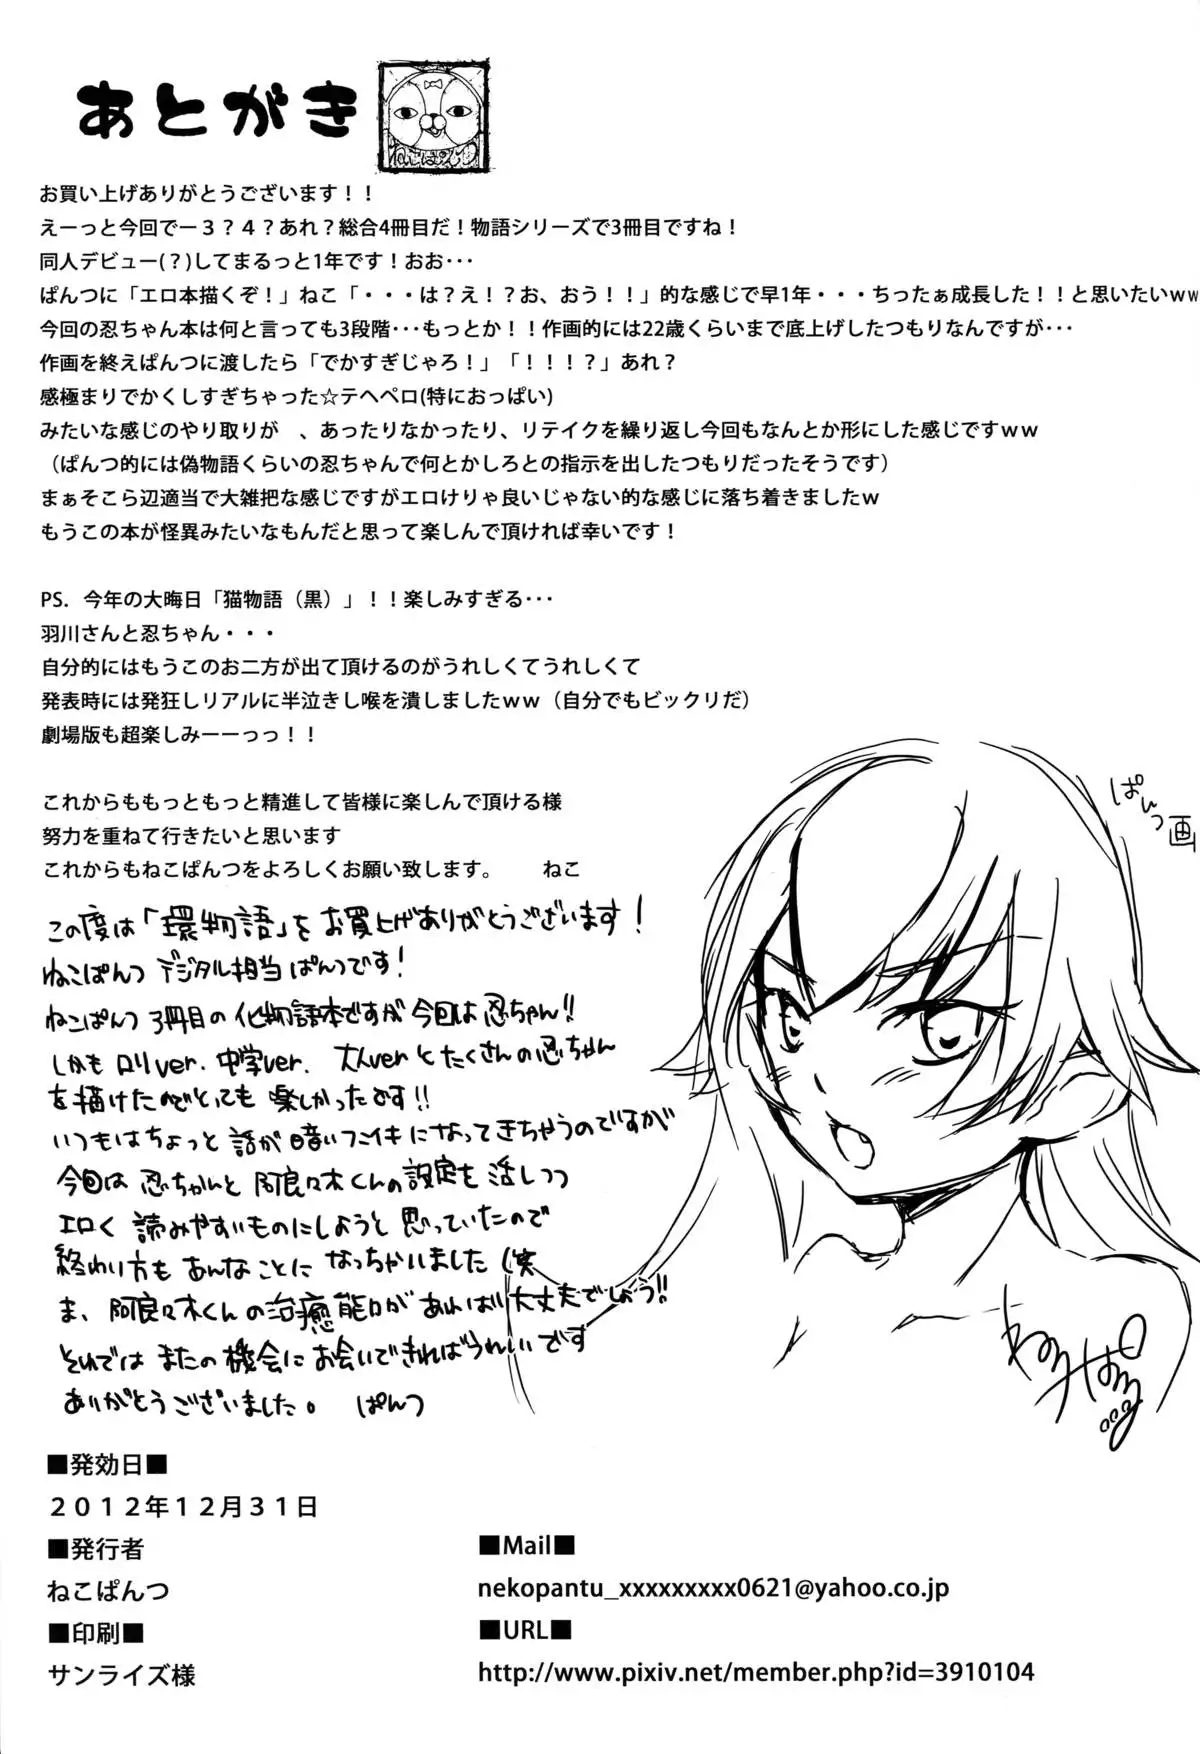 あとがき
ねこぱんつ
お買い上げありがとうございます！！
えーっと今回でー３？４？あれ？総合4冊目だ！物語シリーズで3冊目ですね！
同人デビュー(？)してまるっと1年です！おお･･･
ぱんつに「エロ本描くぞ！」ねこ「・・・は？え！？お、おう！！」的な感じで早1年・・・ちったぁ成長した！！と思いたいｗｗ
今回の忍ちゃん本は何と言っても3段階･･･もっとか！！作画的には22歳くらいまで底上げしたつもりなんですが･･･
作画を終えぱんつに渡したら「でかすぎじゃろ！」「！！！？」あれ？
感極まりでかくしすぎちゃった☆テヘペロ(特におっぱい)
みたいな感じのやり取りが　、あったりなかったり、リテイクを繰り返し今回もなんとか形にした感じですｗｗ
（ぱんつ的には偽物語くらいの忍ちゃんで何とかしろとの指示を出したつもりだったそうです）
まぁそこら辺適当で大雑把な感じですがエロけりゃ良いじゃない的な感じに落ち着きましたｗ
もうこの本が怪異みたいなもんだと思って楽しんで頂ければ幸いです！
PS.　今年の大晦日「猫物語（黒）」！！楽しみすぎる･･･
羽川さんと忍ちゃん・・・
自分的にはもうこのお二方が出て頂けるのがうれしくてうれしくて
発表時には発狂しリアルに半泣きし喉を潰しましたｗｗ（自分でもビックリだ）
劇場版も超楽しみーーっっ！！
これからももっともっと精進して皆様に楽しんで頂ける様
努力を重ねて行きたいと思います
これからもねこぱんつをよろしくお願い致します。　　ねこ
ぱんつ画
この度は「環物語」をお買上げありがとうございます！
ねこぱんつ デジタル担当 ぱんつです！
ねこぱんつ 3冊目の 化物語本ですが 今回は忍ちゃん!!
しかも ロリver. 中学ver. 大人ver とたくさんの忍ちゃん
を描けたのでとても 楽しかったです!!
いつもはちょっと 話が 暗いフンイキになってきちゃうのですが
今回は 忍ちゃんと 阿良々木くんの設定を 活しつつ
エロく 読みやすいものにしようと 思っていたので
終わり方も あんなことに なっちゃいました（笑
ま、阿良々木くんの治癒能力が あれば 大丈夫でしょう!!
それでは またの機会に お会いできればうれしいです
ありがとうございました。 ぱんつ
ねこぱんつ
■発効日■
２０１２年１２月３１日
■発行者
ねこぱんつ
■印刷■
サンライズ様
■Mail■
nekopantu_xxxxxxxxx0621@yahoo.co.jp
■URL■
http://www.pixiv.net/member.php?id=3910104